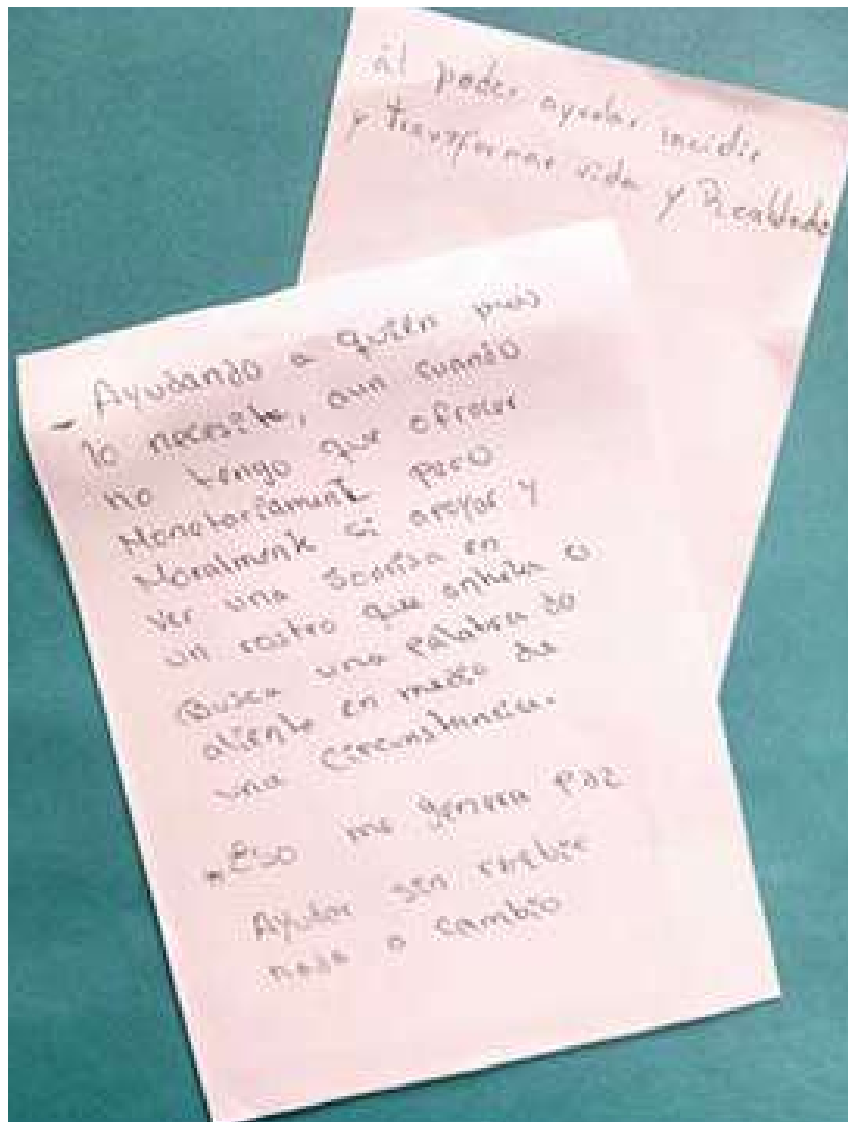 al poder ayudar incidir
y transformar vida y Realidades
- Ayudando a quien más
lo necesite, aun cuando
no tengo que ofrecer
Monetariament pero
Moralment si apoyar y
ver una Sonrisa en
un rostro que anhela o
Busca una palabra de
aliento en medio de
una Circunstancia.
Eso me genera paz
Ayudar sin recibir
nada a cambio